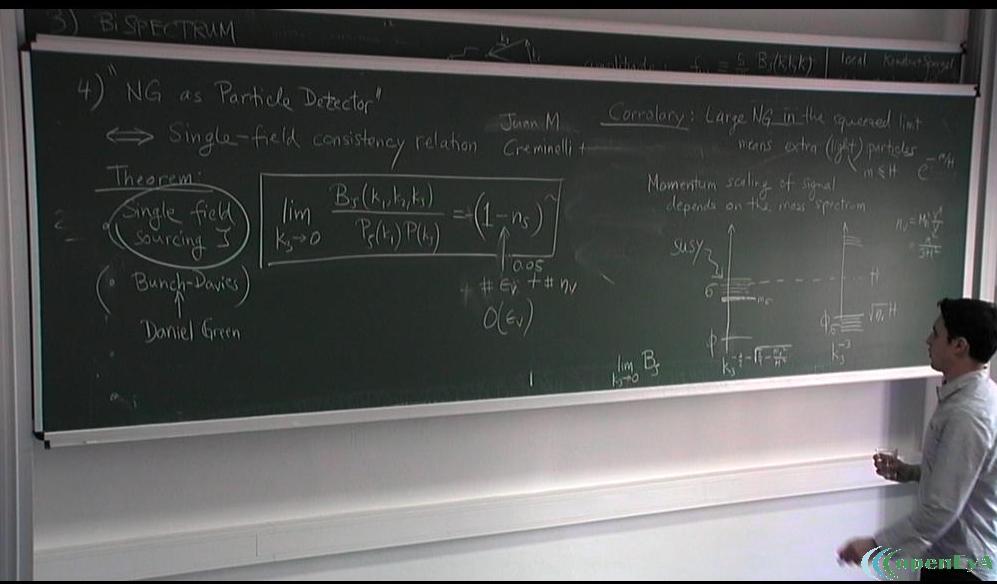 3) BiSPECTRUM
local
4) "NG as Particle Detector"
⟺ Single-field consistency relation
Juan M
Creminelli +
Theorem:
• Single field
sourcing ζ
(• Bunch-Davies)
↑
Daniel Green
lim k₃→0 Bζ(k₁,k₂,k₃) / Pζ(k₁) P(k₃) = (1-nₛ)
0.05
+ # εᵥ + # ηᵥ
O(εᵥ)
lim k₃→0 Bζ
Corrolary: Large NG in the squeezed limit
means extra (light) particles
m ≲ H
Momentum scaling of signal
depends on the mass spectrum
susy
σ
φ
H
k₃⁻³